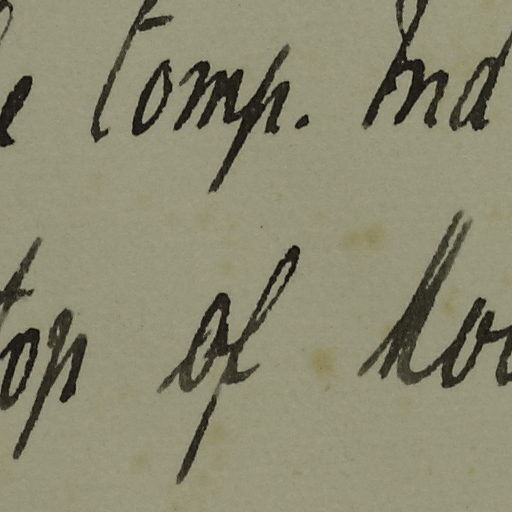 Comp. Ind
top of